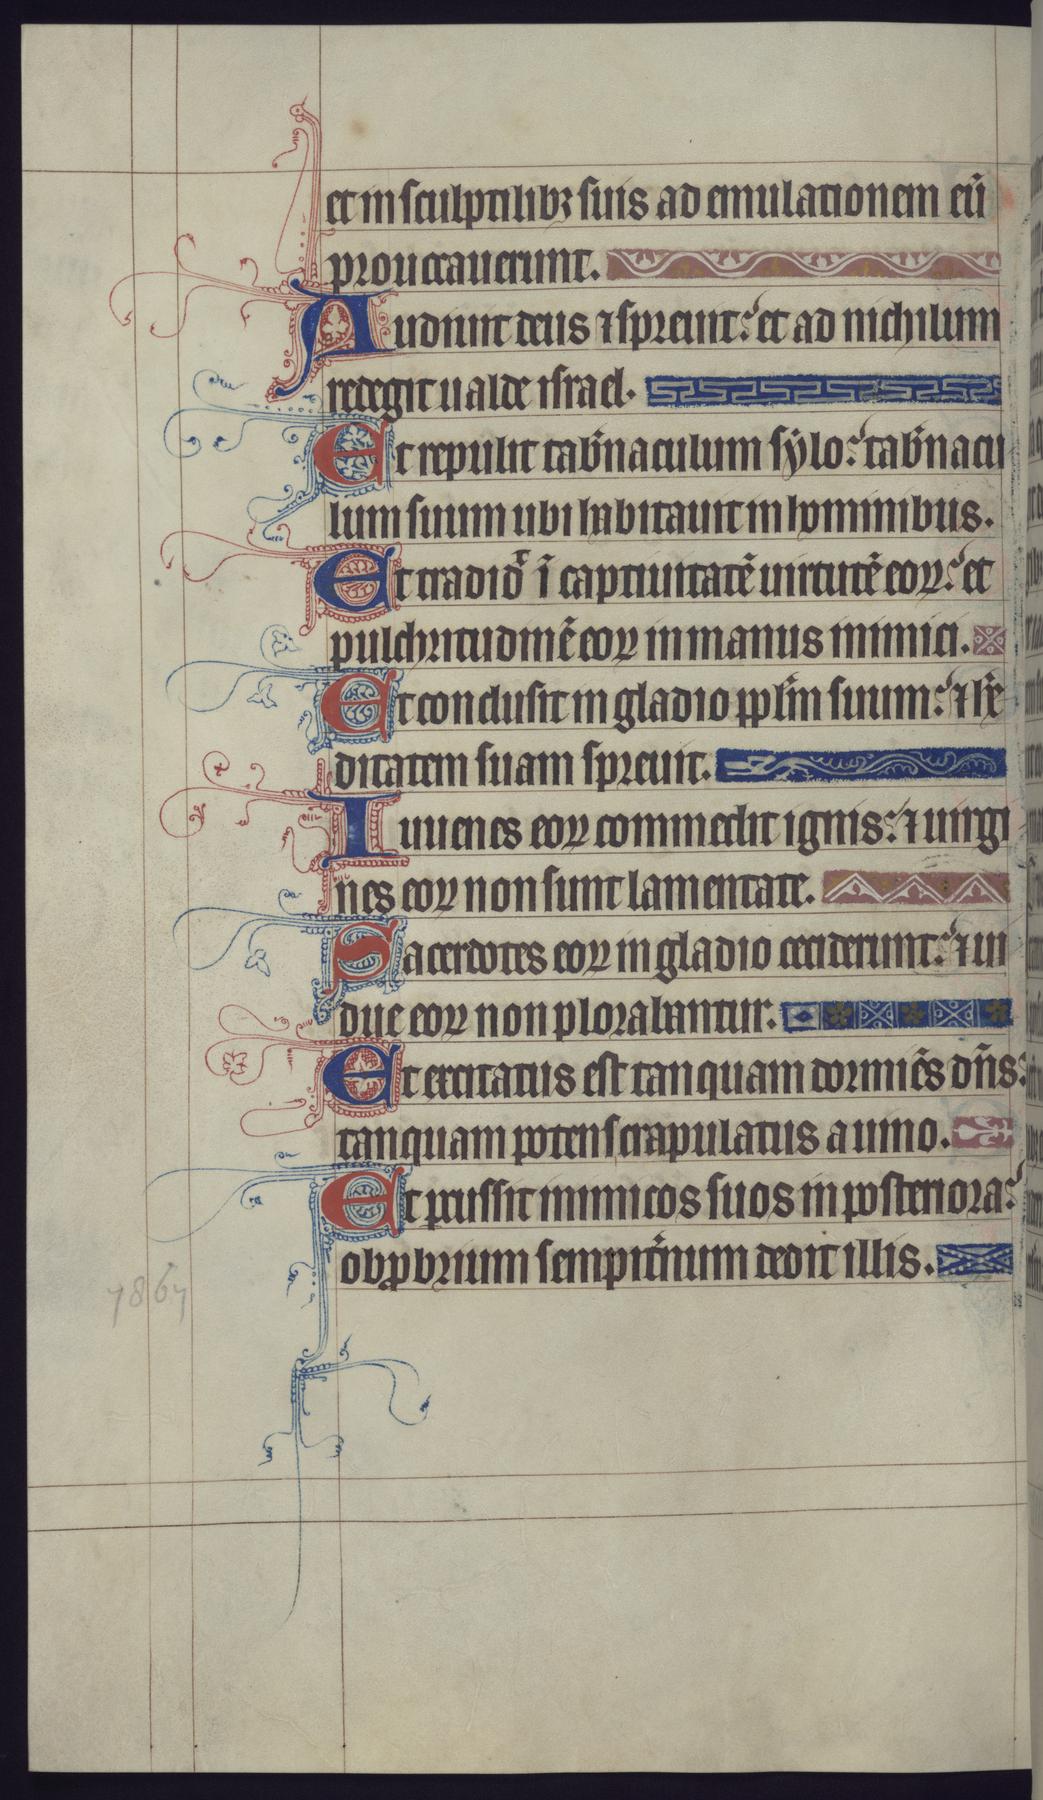 et in sculptilibꝫ suis ad emulationem eū
prouocauerunt.
Audiuit deus ⁊ spreuit: et ad nichilum
redegit ualde israel.
Et repulit tab̄naculum sẏlo: tab̄nacu
lum suum ubi habitauit in hominibus.
Et tradidᷣ ī captiuitatē uirtutē eoꝝ: et
pulchritudinē eoꝝ in manus inimici.
Et conclusit in gladio ppl̄m suum: ⁊ h̄e
ditatem suam spreuit.
Iuuenes eoꝝ commedit ignis: ⁊ uirgi
nes eoꝝ non sunt lamentate.
Sacerdotes eoꝝ in gladio ceciderunt: ⁊ ui
due eoꝝ non plorabantur.
Et excitatus est tanquam dormiēs dn̄s:
tanquam potens crapulatus a uino.
Et ꝑcussit inimicos suos in posteriora:
obꝓbrium sempit̄num dedit illis.